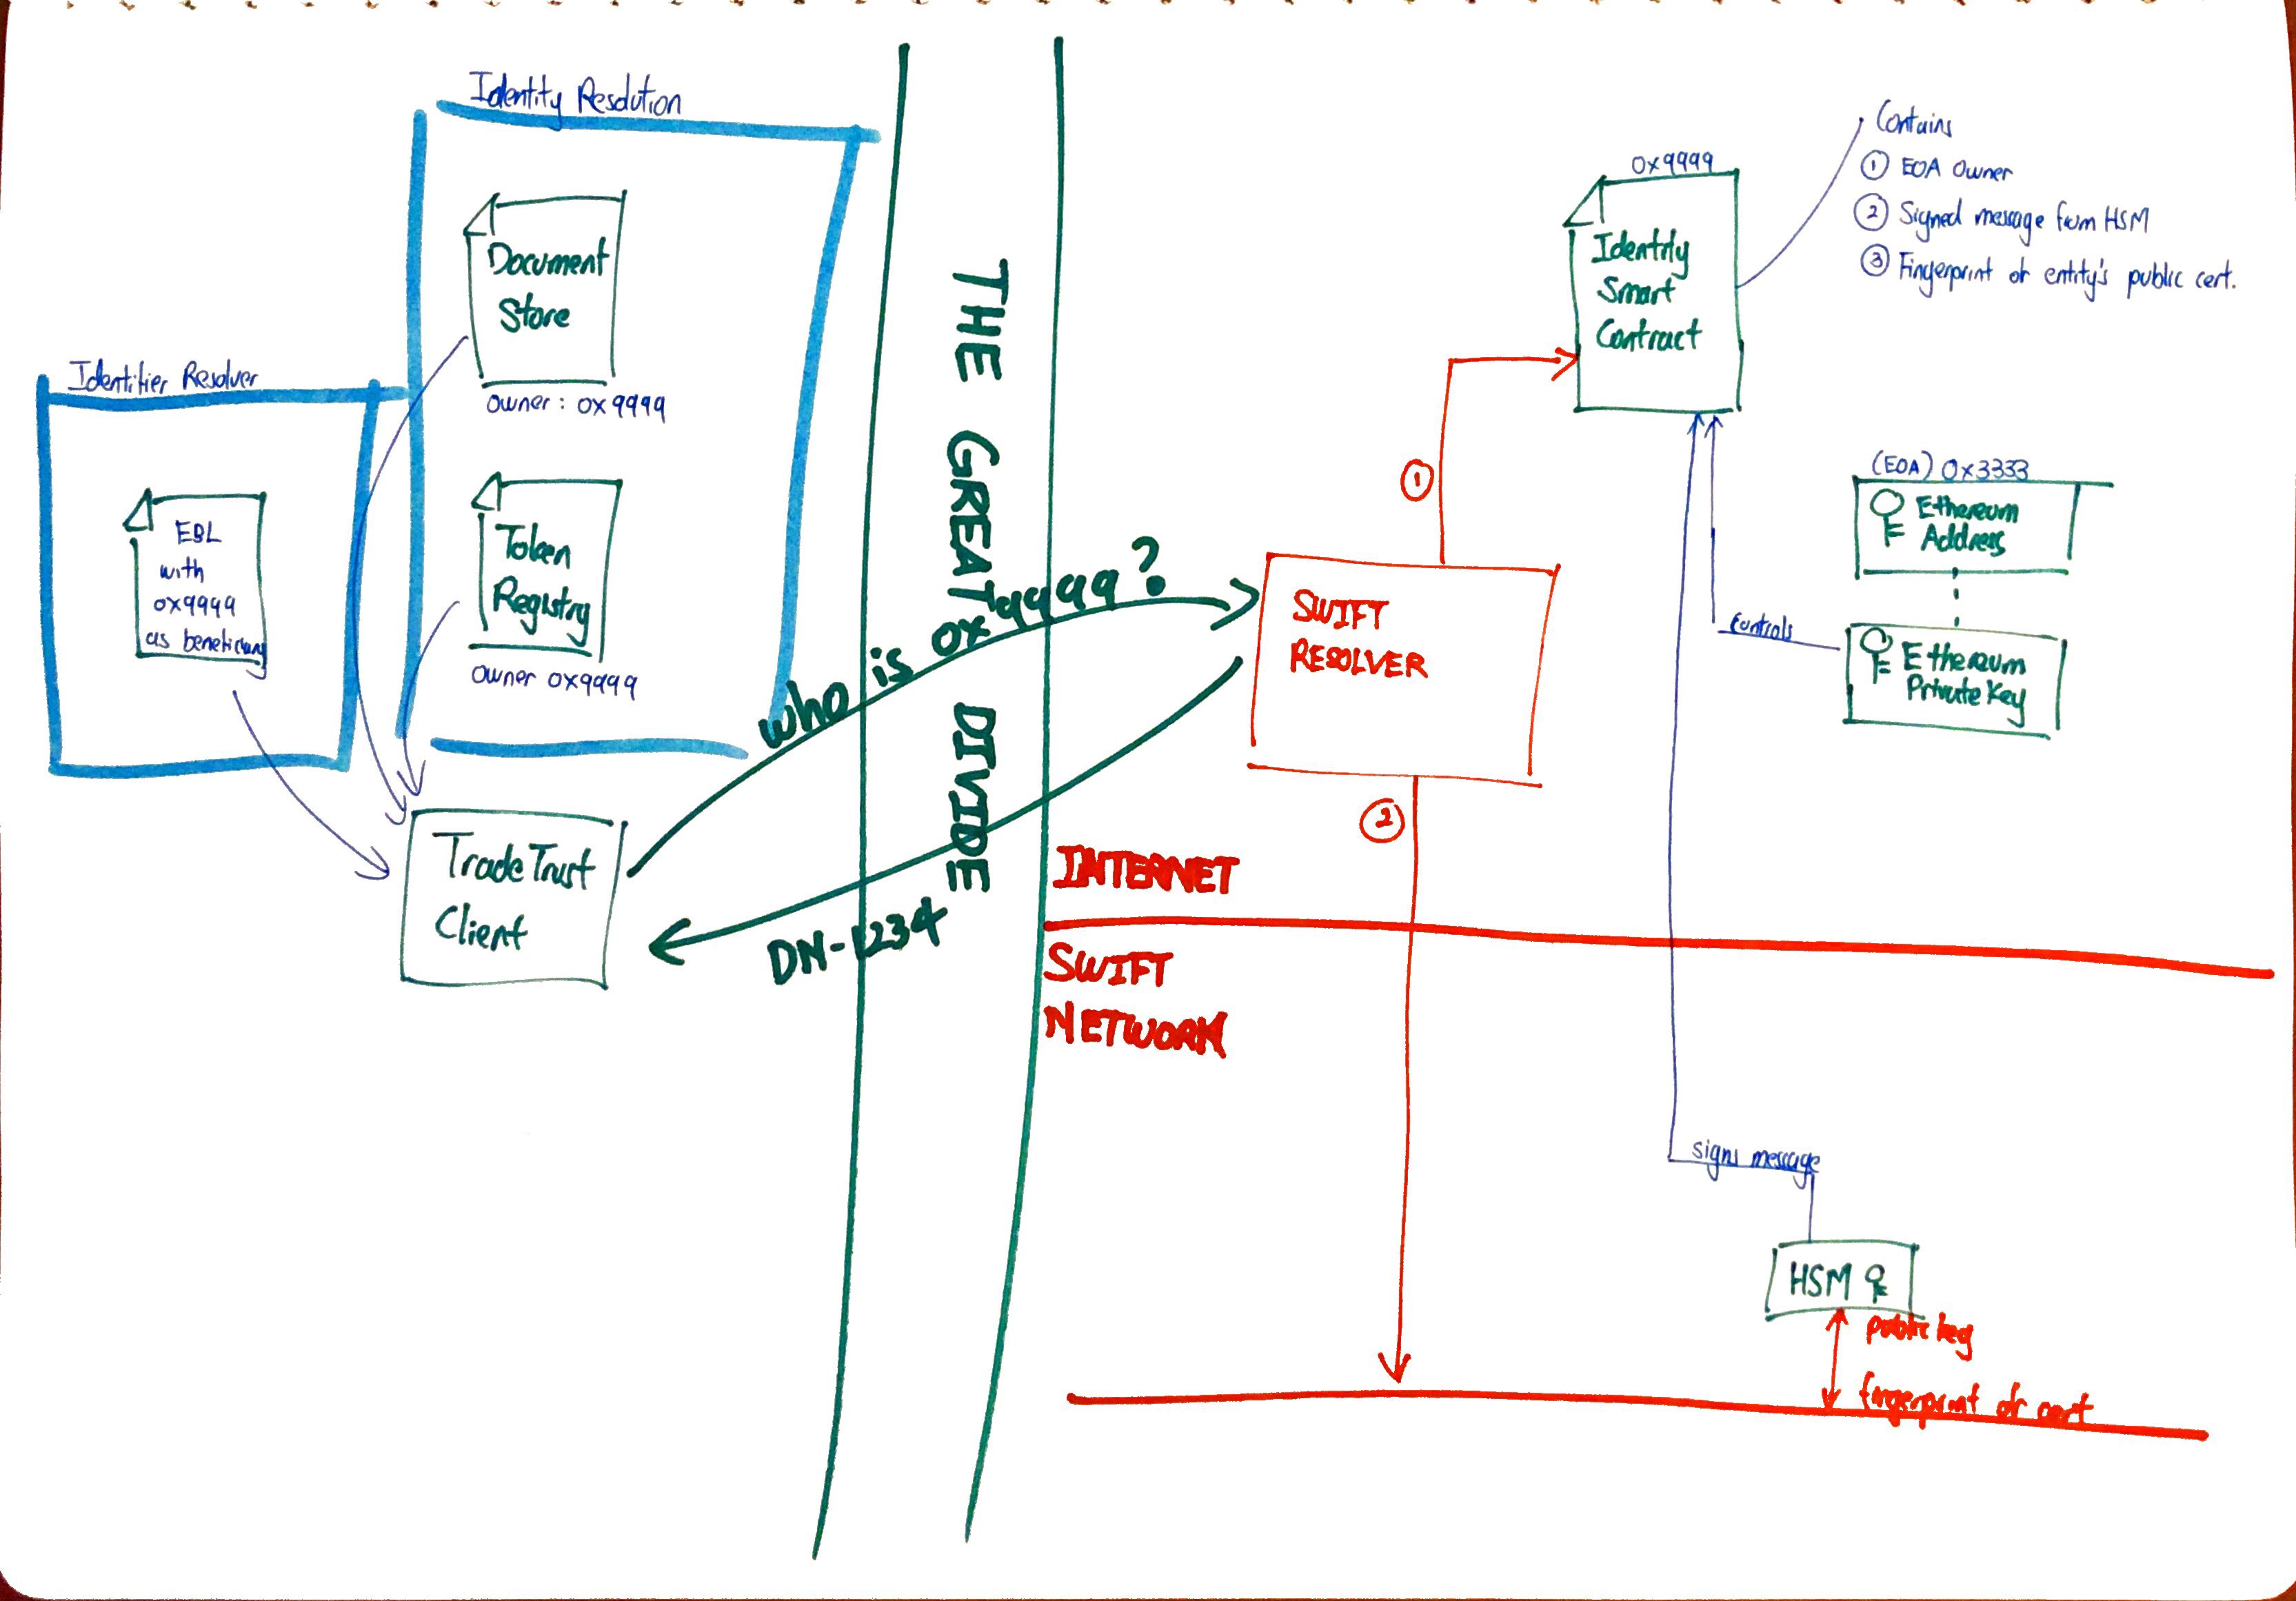 Identity Resolution
Document
Store
owner: 0x9999
Token
Registry
owner 0x9999
Identifier Resolver
EBL
with
0x9999
as beneficiary
TradeTrust
Client
THE GREAT DIVIDE
who is 0x9999?
DN-1234
SWIFT
RESOLVER
①
②
INTERNET
SWIFT
NETWORK
0x9999
Identity
Smart
Contract
Contains
① EOA Owner
② Signed message from HSM
③ Fingerprint of entity's public cert.
(EOA) 0x3333
Ethereum
Address
Ethereum
Private Key
controls
signs message
HSM
public key
fingerprint of cert